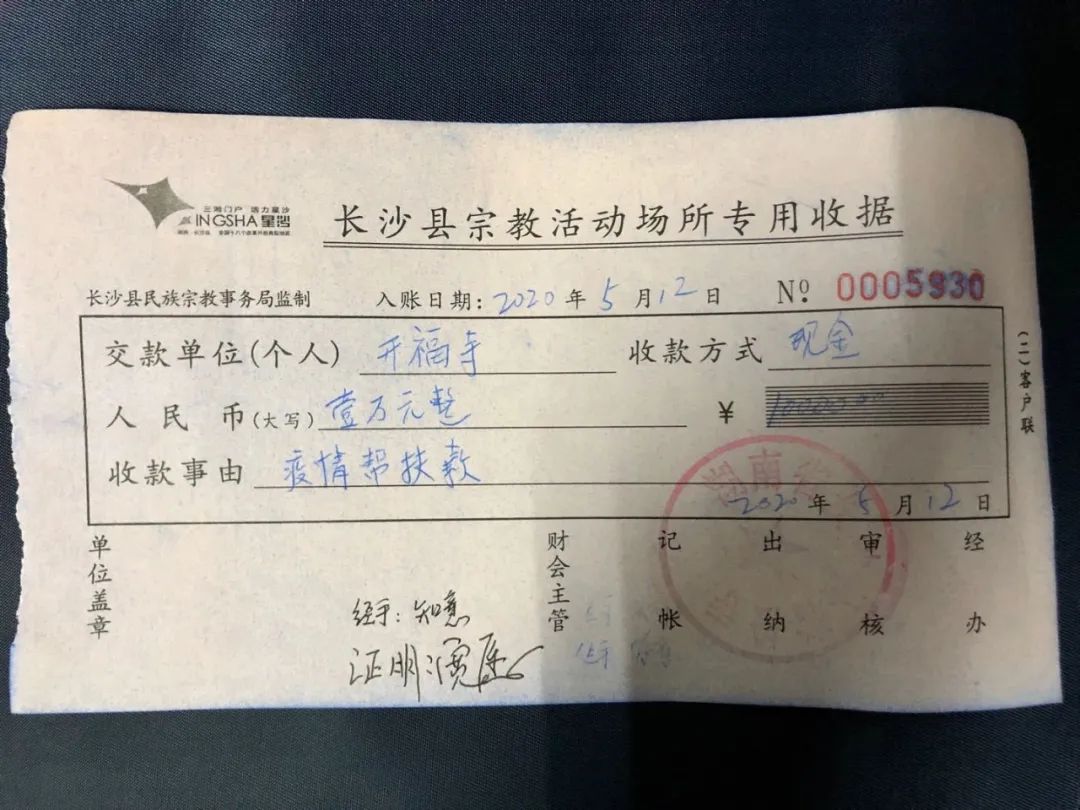 三湘门户 活力星沙
XINGSHA 星沙
长沙县宗教活动场所专用收据
长沙县民族宗教事务局监制 入账日期：2020年5月12日 Nº 0005930
交款单位(个人) 开福寺 收款方式 现金
人民币(大写) 壹万元整 ¥ 10000.00
收款事由 疫情帮扶款
2020年5月12日
(二)客户联
单位盖章 财会主管 记帐 出纳 审核 经办
湖南
经手：知意
证明：